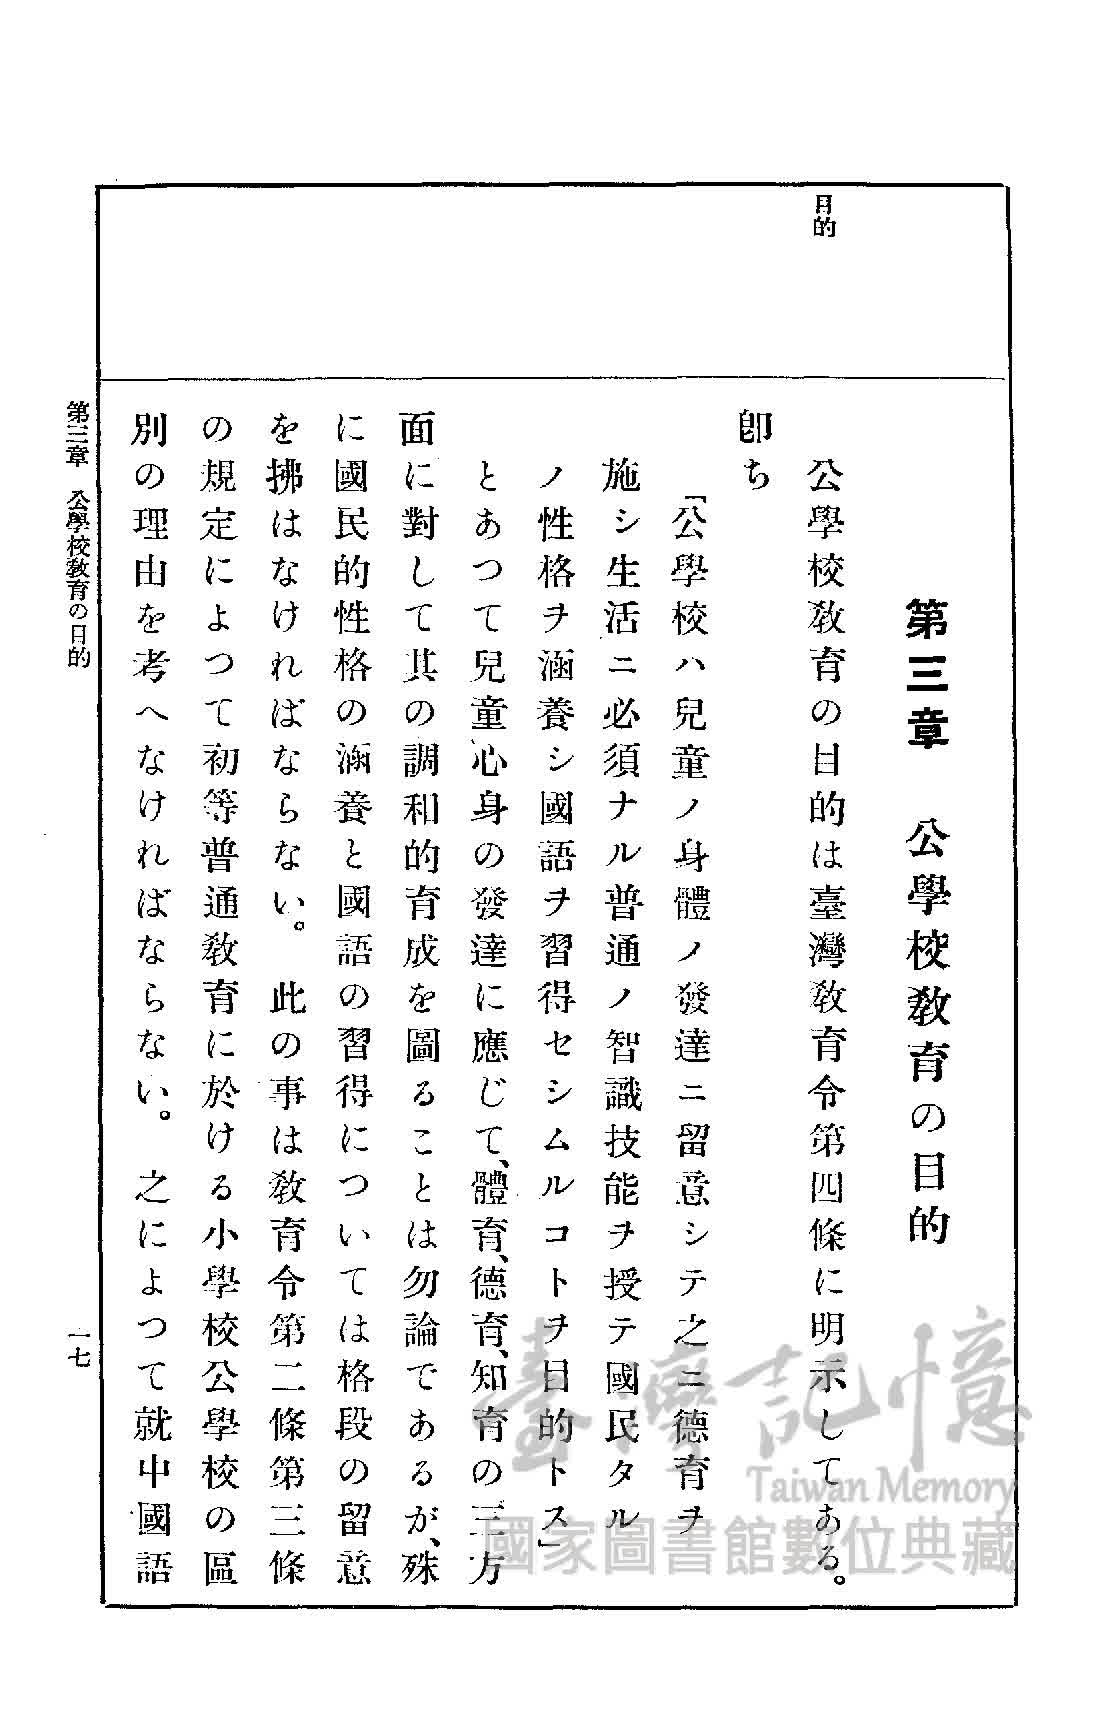 目的
第三章　公學校教育の目的
公學校教育の目的は臺灣教育令第四條に明示してある。
卽ち
「公學校ハ兒童ノ身體ノ發達ニ留意シテ之ニ德育ヲ
施シ生活ニ必須ナル普通ノ智識技能ヲ授テ國民タル
ノ性格ヲ涵養シ國語ヲ習得セシムルコトヲ目的トス」
とあつて兒童心身の發達に應じて、體育、德育、知育の三方
面に對して其の調和的育成を圖ることは勿論であるが、殊
に國民的性格の涵養と國語の習得については格段の留意
を拂はなければならない。此の事は教育令第二條第三條
の規定によつて初等普通教育に於ける小學校公學校の區
別の理由を考へなければならない。之によつて就中國語
第三章　公學校教育の目的
一七
臺灣記憶
Taiwan Memory
國家圖書館數位典藏